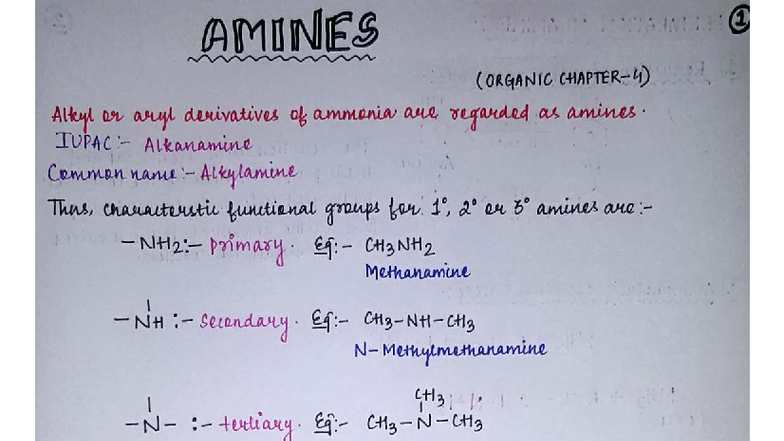 AMINES
1
(ORGANIC CHAPTER-4)
Alkyl or aryl derivatives of ammonia are regarded as amines.
IUPAC:- Alkanamine
Common name:- Alkylamine
Thus, characterstic functional groups for 1°, 2° or 3° amines are:-
-NH2:- primary. Eg:- CH3NH2
Methanamine
-NH :- secondary. Eg:- CH3-NH-CH3
N-Methylmethanamine
CH3
-N- :- tertiary. Eg:- CH3-N-CH3